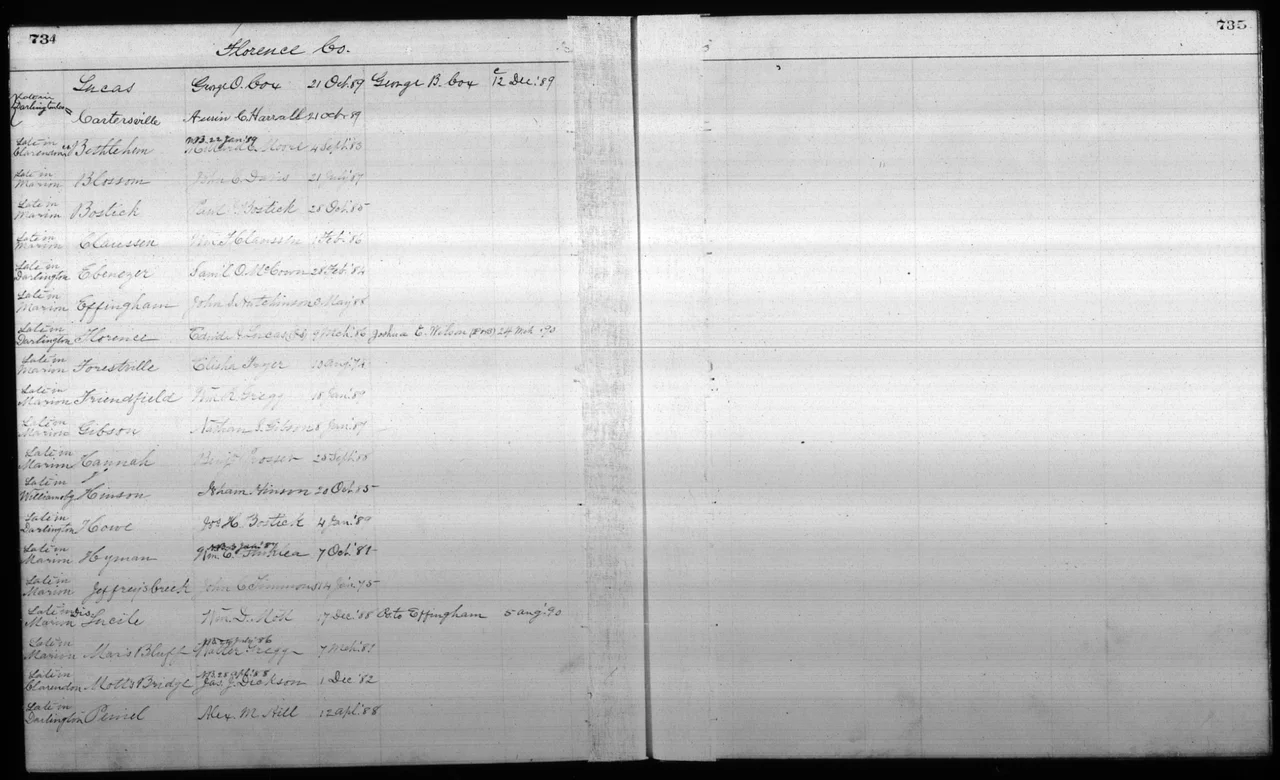 734
735
Florence Co.
Lucas George O. Cox 21 Oct. 89 George B. Cox 12 Dec. '89
Late in Darlington Cartersville C Harrall 21 Oct 89
Late in Clarendon Bethlehem NB. 22 Jan '89 E. Moore 4 Sept '83
Late in Marion Blossom John C. Davis 21 July '87
Late in Marion Bostick Bostick 28 Oct. 85
Late in Marion Claussen Wm. H. Claussen 1 Feb. '86
Late in Darlington Ebenezer Sam'l O. McCown 28 Feb. '84
Late in Marion Effingham John S. Hutchinson May '88
Late in Darlington Florence Lucas 9 Mch. '86 Joshua E. Wilson 24 Mch '90
Late in Marion Forestville Elisha Fryer
Late in Marion Friendfield Wm. R. Gregg 18 Jan '89
Late in Marion Gibson Nathan S. Gibson 8 Jan. '87
Late in Marion Hannah Benj. Prosser Sept. 88
Late in Williamsbg Hinson Isham Hinson 20 Oct. 85
Late in Darlington Howe Jos H. Bostick 4 Jan. '89
Late in Marion Hyman Wm. E. 7 Oct. '81
Late in Marion Jeffreys Creek John C. Timmons 14 Jan. '75
Late in Marion Dis Lucile Wm. D. Moth 17 Dec. '88 to Effingham 5 Aug. '90
Late in Marion Mars Bluff Walter Gregg 7 Mch. '81
Late in Clarendon Motts Bridge NB 28 Apl. '88 Jas. J. Dickson 1 Dec '82
Late in Darlington Peniel Alex. M Hill 12 Apl. '88